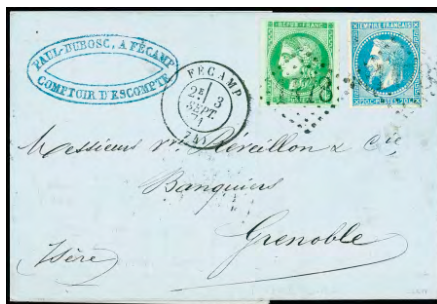 PAUL-DUBOSC, A FÉCAMP
COMPTOIR D'ESCOMPTE
FECAMP
2E 3
SEPT.
71
(74)
REPUB. FRANC.
EMPIRE FRANÇAIS
Messieurs Vve Réveillon & Cie
Banquiers
Grenoble
Isère